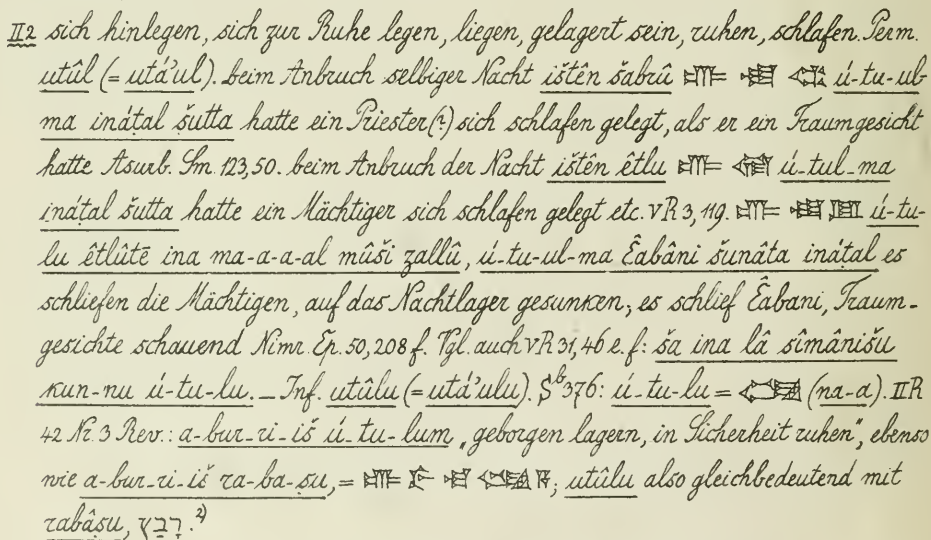 II2 sich hinlegen, sich zur Ruhe legen, liegen, gelagert sein, ruhen, schlafen. Perm.
utûl (= utá’ul). beim Anbruch selbiger Nacht ištên šabrû ú-tu-ul-
ma ináṭal šutta hatte ein Priester(?) sich schlafen gelegt, als er ein Traumgesicht
hatte Asurb. Sm. 123,50. beim Anbruch der Nacht ištên êtlu ú-tul-ma
ináṭal šutta hatte ein Mächtiger sich schlafen gelegt etc. VR 3, 119. ú-tu-
lu êtlûtē ina ma-a-a-al mûši zallû, ú-tu-ul-ma Êabâni šunâta ináṭal es
schliefen die Mächtigen, auf das Nachtlager gesunken; es schlief Êabani, Traum-
gesichte schauend Nimr. Ep. 50, 208 f. Vgl. auch VR 31, 46 e. f: ša ina lâ sîmânišu
kun-nu ú-tu-lu. — Inf. utûlu (= utá’ulu). Sᵇ 376: ú-tu-lu = (na-a). IIR
42 Nr. 3 Rev.: a-bur-ri-iš ú-tu-lum „geborgen lagern, in Sicherheit ruhen“, ebenso
wie a-bur-ri-iš ra-ba-ṣu, = ; utûlu also gleichbedeutend mit
rabâṣu, רָבַץ.²⁾